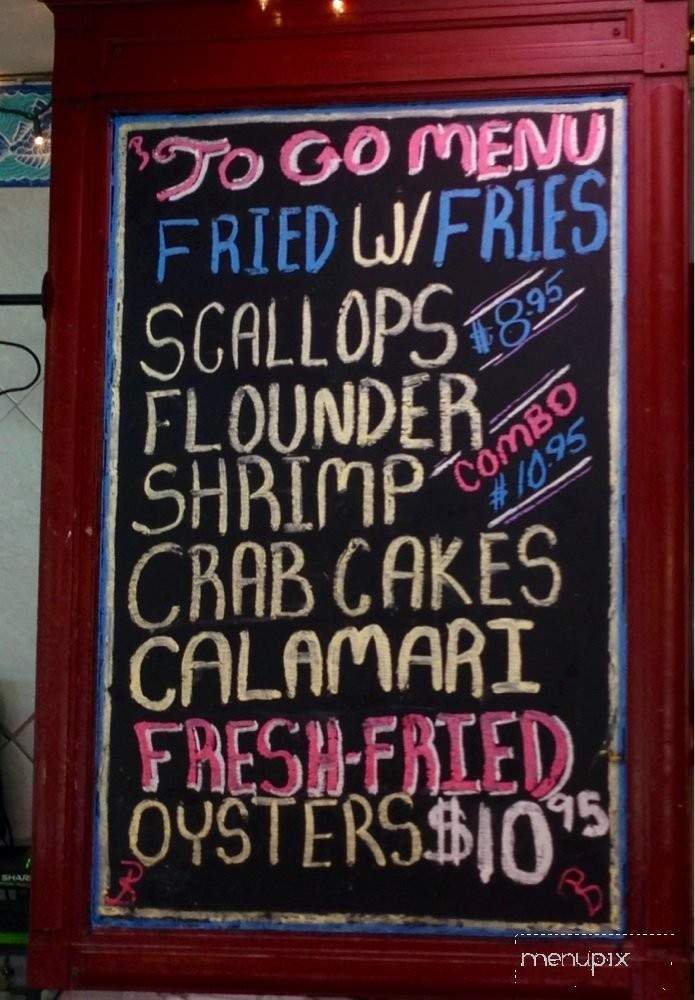 TO GO MENU
FRIED W/ FRIES
SCALLOPS $8.95
FLOUNDER
SHRIMP COMBO $10.95
CRAB CAKES
CALAMARI
FRESH-FRIED
OYSTERS $10.95
SHAR
menupix